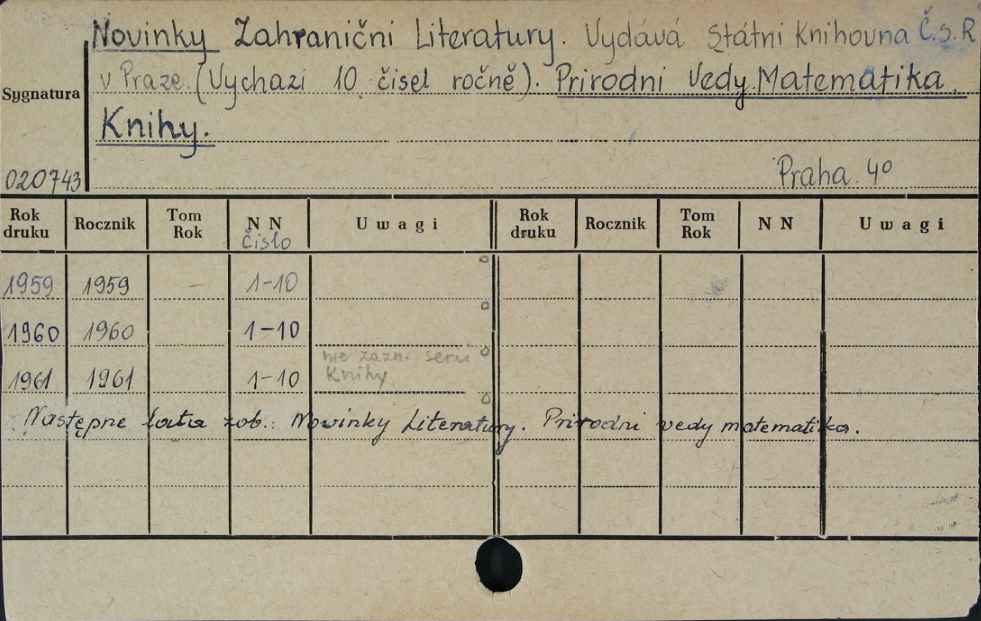 Novinky Zahraniční Literatury. Vydává Státni Knihovna Č.S.R
v Praze. (Vychazi 10 čisel ročně). Prirodni Vedy. Matematika.
Knihy.
Sygnatura
020743
Praha. 4º
Rok druku Rocznik Tom Rok N N čislo Uwagi Rok druku Rocznik Tom Rok N N Uwagi
1959 1959 1-10
1960 1960 1-10
nie zazn. serii
1961 1961 1-10 Knihy
Następne lata zob.: Nowinky Literatury. Prirodni vedy matematika.